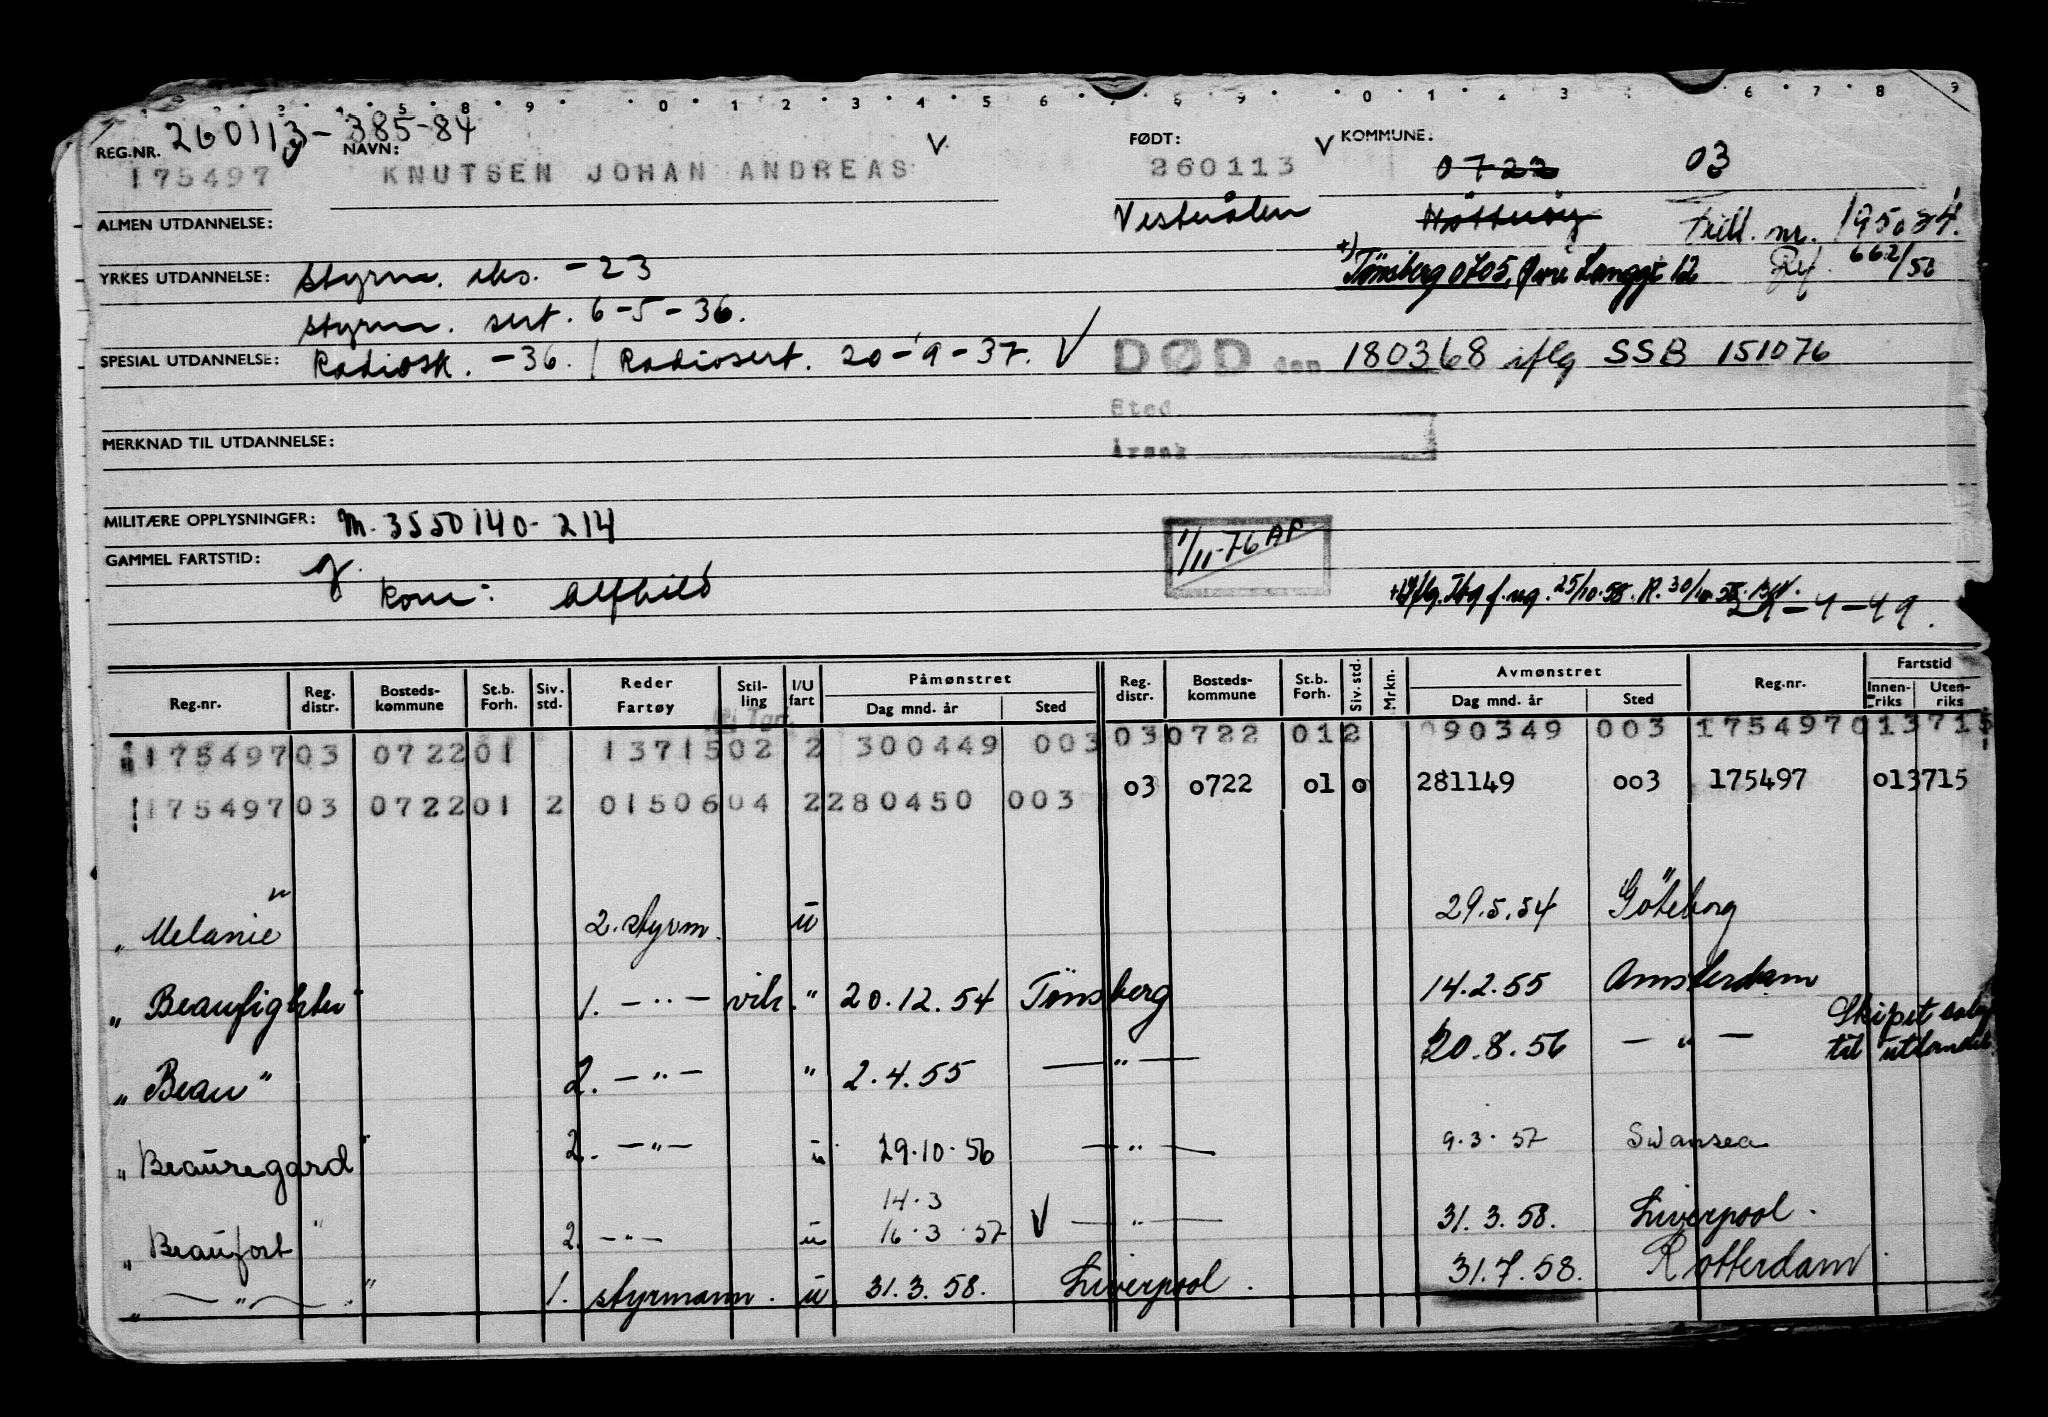 0 1 2 3 4 5 6 7 8 9 0 1 2 3 6 7 8 9
260113 - 385-84
REG.NR. NAVN: FØDT: KOMMUNE:
175497 KNUTSEN JOHAN ANDREAS V 260113 V 0722 03
ALMEN UTDANNELSE: Vesterålen Nøtterøy
+) Tønsberg 0705, Øvre Langgt 62 662/56
YRKES UTDANNELSE: styrm. eks. -23
styrm. sert. 6-5-36.
SPESIAL UTDANNELSE: Radiosk. -36. / Radiosert. 20-9-37. V
DØD den 180368 iflg SSB 151076
Sted
Årsak
MERKNAD TIL UTDANNELSE:
MILITÆRE OPPLYSNINGER: M. 3550140-214
1/11-76 AP
GAMMEL FARTSTID:
Kone: Alfhild
Reg.nr. Reg. distr. Bosteds- kommune St.b. Forh. Siv. std. Reder Fartøy Stil- ling I/U fart Påmønstret Dag mnd. år Sted Reg. distr. Bosteds- kommune St.b. Forh. Siv. std. Mrkn. Avmønstret Dag mnd. år Sted Reg.nr. Fartstid Innen- riks Uten- riks
175497 03 0722 01 13715 02 2 300449 003 03 0722 01 2 090349 003 175497 013715
03 0722 01 0 281149 003 175497 013715
175497 03 0722 01 2 01506 04 2 280450 003
" Melanie " 2. styrm. u 29.5.54 Göteborg
" Beaufighter " 1. — " — vik. " 20.12.54 Tønsberg 14.2.55 Amsterdam
" Beau " 2. — " — " 2.4.55 — " — 20.8.56 — " — Skipet solgt til utlandet
" Beauregard " 2. — " — u 29.10.56 — " — 9.3.57 Swansea
14.3
" Beaufort " 2. — " — u 16.3.57 V — " — 31.3.58. Liverpool.
" — " — " 1. styrmann. u 31.3.58. Liverpool. 31.7.58. Rotterdam.